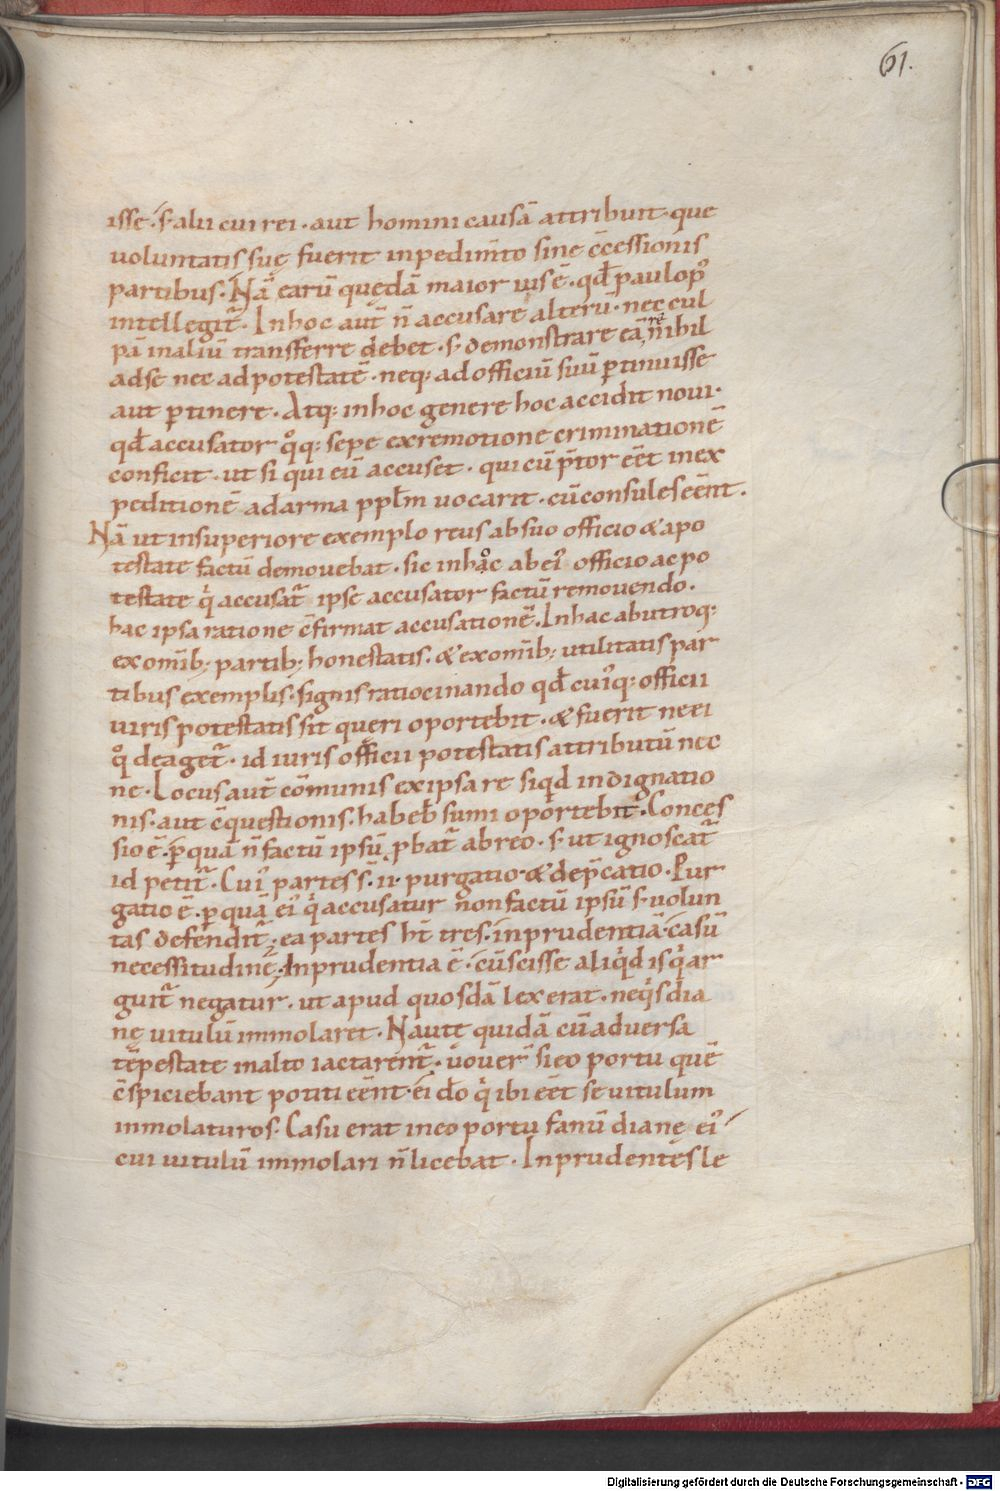 61.
isse. s; alii cui rei. aut homini causā attribuit. que
uoluntatis suę fuerit inpedim̄to sine c̄cessionis
partibus. Nā earū quędā maior uis ē. qđ paulo p᷒
intellegit᷑. In hoc aut̄ n̄ accusare alterū. nec cul
pā in aliū transferre debet. s; demonstrare eā rē nihil
ad se nec ad potestatē. neq; ad officiū suū ꝑtinuisse
aut ꝑtinere. Atq; in hoc genere hoc accidit noui.
qđ accusator qͦq; sepe ex remotione criminationē
conficit. ut si qui eū accuset. qui cū p̄tor eēt in ex
peditionē ad arma ppl̄m uocarit. cū consules eēnt.
Nā ut in superiore exemplo reus ab suo officio & a po
testate factū demouebat. sic in hͦc ab ei᷒ officio ac po
testate qͥ accusat᷑ ipse accusator factū remouendo.
hac ipsa ratione c̄firmat accusationē. In hac ab utroq;
ex omīb; partib; honestatis. & ex omīb; utilitatis par
tibus exemplis. signis ratiocinando qđ cui᷒q; officii
uiris potestatis sit queri oportebit. & fuerit ne ei
qͦ de aget᷑. id iuris officii potestatis attributū nec
ne. Locus aut̄ cōmunis ex ipsa re siqͥd indignatio
nis. aut c̄questionis. habeb̄ sumi oportebit. Conces
sio ē. ꝑ quā n̄ factū ipsū ꝓbat᷑ ab reo. s; ut ignoscat᷑
id petit᷑. Cui᷒ partes s̄. ii. purgatio. & dep̄catio. Pur
gatio ē. ꝑ quā ei᷒ qͥ accusatur non factū ipsū s; uolun
tas defendit᷑; ea partes ht̄ tres. inprudentiā. casū
necessitudinē; Inprudentia ē. cū scisse aliqͥd is qͥ ar
guit᷑ negatur. ut apud quosdā lex erat. neqͥs dia
nę uitulū immolaret. Nautę quidā cū aduersa
tēpestate in alto iactarent᷑. uouer̄ si eo portu quē
c̄spiciebant potiti eēnt. ei dō qͥ ibi eēt se uitulum
inmolaturos. Casu erat in eo portu fanū dianę ei᷒
cui uitulū immolari n̄ licebat. Inprudentes le
Digitalisierung gefördert durch die Deutsche Forschungsgemeinschaft - DFG